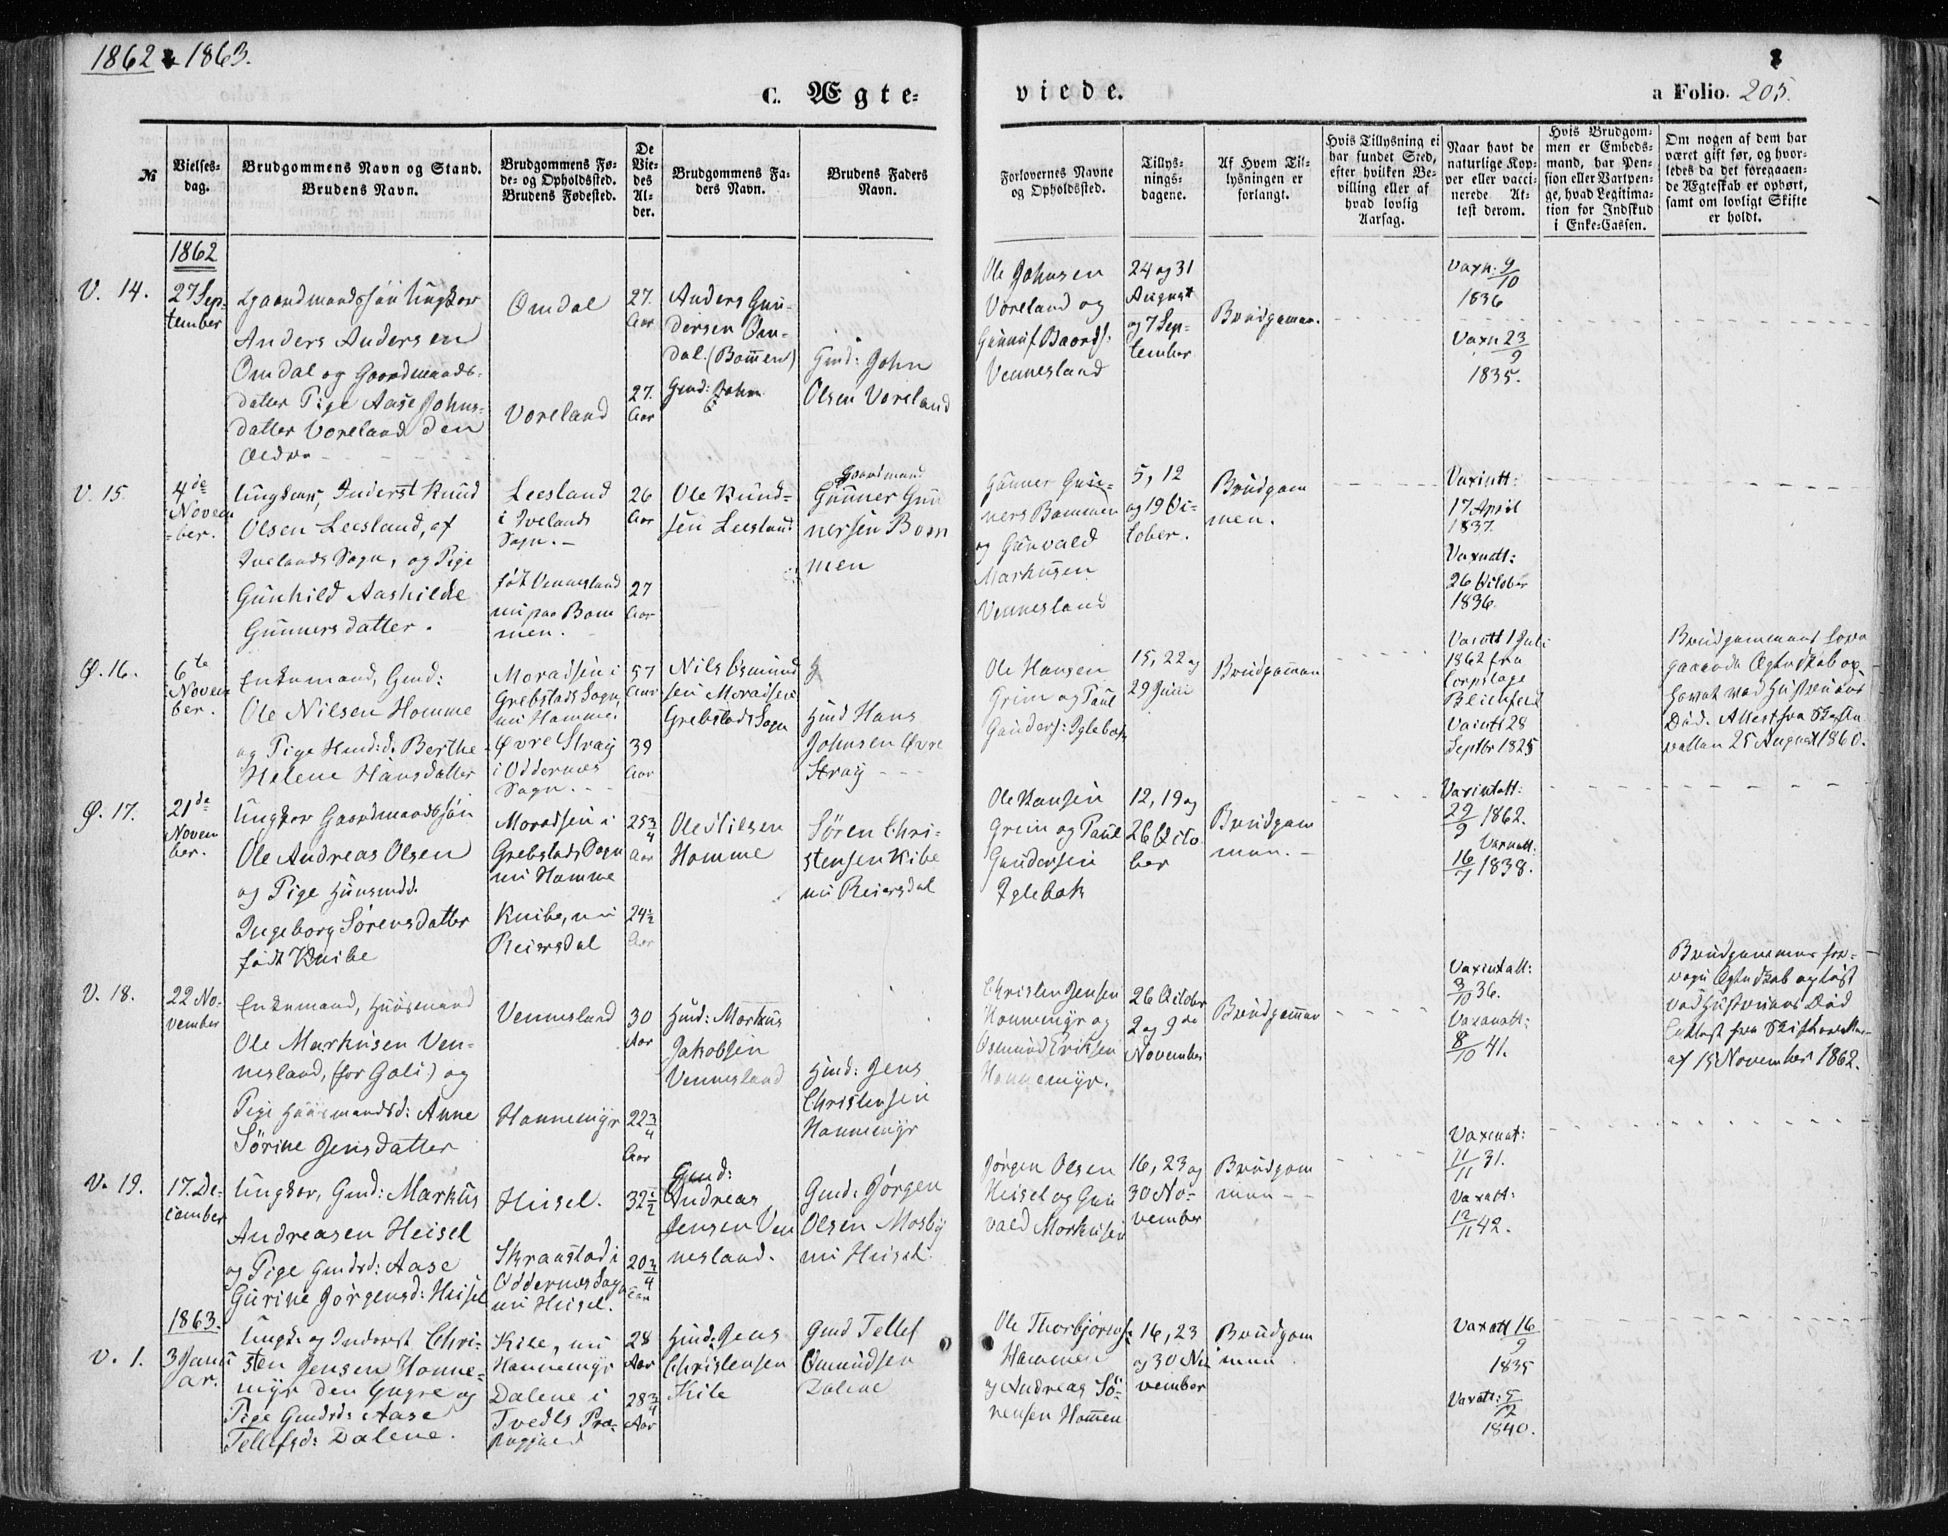 1862 & 1863.
C. Ægte-
viede.
a Folio. 205.
№
Vielses-
dag.
Brudgommens Navn og Stand.
Brudens Navn.
Brudgommens Fø-
de- og Opholdssted.
Brudens Fødested.
De
Vie-
des
Al-
der.
Brudgommens Fa-
ders Navn.
Brudens Faders
Navn.
Forlovernes Navne
og Opholdssted.
Tillys-
nings-
dagene.
Af Hvem Til-
lysningen er
forlangt.
Hvis Tillysning ei
har fundet Sted,
efter hvilken Be-
villing eller af
hvad lovlig
Aarsag.
Naar havt de
naturlige Kop-
per eller vacci-
nerede At-
test derom.
Hvis Brudgom-
men er Embeds-
mand, har Pen-
sion eller Vartpen-
ge, hvad Legitima-
tion for Indskud
i Enke-Cassen.
Om nogen af dem har
været gift før, og hvor-
ledes da det foregaaen-
de Ægteskab er ophørt,
samt om lovligt Skifte
er holdt.
1862
V. 14.
27 Sep-
tember
Gaardmandssøn Ungkar
Anders Andersen
Omdal og Gaardmands-
datter Pige Aase Johns-
datter Voreland den
Ældre
Omdal
Voreland
27
Aar
27
Aar
Anders Gun-
dersen Om-
dal (Bommen)
Gmd: John
Gmd: John
Olsen Voreland
Ole Johnsen
Voreland og
Gunuf Baards:
Vennesland
24 og 31
August
og 7 Sep-
tember
Brudgommen
Vaxn: 9/10
1836
Vaxn 23/9
1835.
V. 15.
4de
Novem
-ber.
Ungkar, Inderst Knud
Olsen Leesland, af
Ivelands Sogn, og Pige
Gunhild Aashilde
Gunnersdatter.
Leesland
i Ivelands
Sogn.-
født Vennesland
nu paa Bom
men.
26
Aar
27
Aar
Ole Knud-
sen Leesland
Gaardmand
Gunner Gun
nersen Bom
men
Gunner Gun-
ners Bommen
og Gunvald
Markusen
Vennesland
5, 12
og 19 Oc-
tober.
Brudgom
men.
Vaxinatt:
17 April
1837.
Vaxnatt:
26 October
1836.
Ø. 16.
6te
Novem
ber.
Enkemand, Gmd:
Ole Nilsen Homme
og Pige Husmd: d. Berthe
Helene Hansdatter
Moradsen i
Grebstads Sogn,
nu Homme.
Øvre Stray
i Oddernes
Sogn.
57
Aar
39
Aar
Nils Osmund
sen Moradsen
Grebstads Sogn
Hmd Hans
Johnsen Øvre
Stray
Ole Hansen
Grim og Paul
Gunders: Iglebæk
15, 22 og
29 Juni
Brudgommen
Vaxatt 1 Juli
1862 fra
Corpslæge
Blichfeld
Vaxatt 28
Septbr 1825
Brudgommens fore
gaaende Ægteskab op
hævet ved Hustruens
Død. Attest fra Skifte
retten 25 August 1860.
Ø. 17.
21de
Novem
ber.
Ungkar Gaardmandssøn
Ole Andreas Olsen
og Pige Husmdd.
Ingeborg Sørensdatter
født Knibe
Moradsen i
Grebstads Sogn
nu Homme
Knibe, nu
Reiersdal
25 3/4
Aar
24 1/2
Aar
Ole Nilsen
Homme
Søren Chri-
stensen Kibe
nu Reiersdal
Ole Hansen
Grim og Paul
Gundersen
Iglebæk
12, 19 og
26 Octo
ber
Brudgom
men.-
Vaxinatt:
29/9 1862.
Vaxnatt:
16/7 1838.
V. 18.
22 No-
vember
Enkemand, Huusmand
Ole Markusen Ven-
nesland, (før Gali) og
Pige Huusmandsd: Anne
Sørine Jensdatter
Vennesland
Honnemyr
30
Aar
22 3/4
Aar
Hmd: Markus
Jakobsen
Vennesland
Hmd: Jens
Christensen
Honnemyr
Christen Jensen
Honnemyr og
Osmund Eriksen
Honnemyr.
26 October
2 og 9de
November
Brudgommen
Vaxinatt:
3/10 36.
Vaxanatt:
8/10 41.
Brudgommens for-
rige Ægteskab opløst
ved Hustruens Død
Attest fra Skifteretten
af 15 November 1862.
V. 19.
17. De-
cember
Ungkar, Gmd: Markus
Andreasen Heisel
og Pige Gmdsd: Aase
Gurine Jørgensd: Heisel
Heisel.
Skraastad i
Oddernes Sogn
nu Heisel.
32 1/2
20 3/4
Aar
Gmd:
Andreas
Jensen Ven
nesland.
Gmd: Jørgen
Olsen Mosby
nu Heisel.
Jørgen Olsen
Heisel og Gun
vald Markusen
16, 23 og
30 No-
vember
Brudgom
men - -
Vaxinat:
11/11 31.
Vaxatt:
12/11 42.
1863.
V. 1.
3 Janu
ar.
Ungk. og Inderst Chri-
sten Jensen Honne-
myr den Yngre og
Pige Gmdsd: Aase
Tellefsd: Dalene.
Kile, nu
Honnemyr
Dalene i
Tveits Præ-
stegjeld
28
Aar
28 3/4
Aar
Hmd: Jens
Christensen
Kile
Gmd Tellef
Omundsen
Dalene
Ole Thorbjørns:
Hommen
og Andreas Sö-
rensen Hommen
16, 23
og 30 No
vember
Brudgom
men
Vaxatt 16/9
1835
Vaxatt: 5/12
1840.